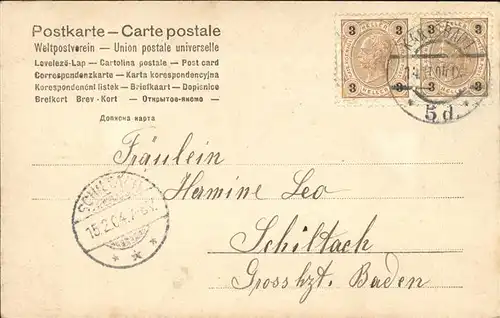 Postkarte — Carte postale
Weltpostverein — Union postale universelle
Levelező-Lap — Cartolina postale — Post card
Correspondenzkarte — Karta korespondencyjna
Korespondenční lístek — Briefkaart — Dopisnice
Brefkort Brev-Kort — Открытое письмо —
Дописна карта
3 3 3 3
HELLER HELLER
3 3 3 3
5 d.
Fräulein
Hermine Leo
Schiltach
Grosshzt. Baden
SCHILTACH
15.2.04.